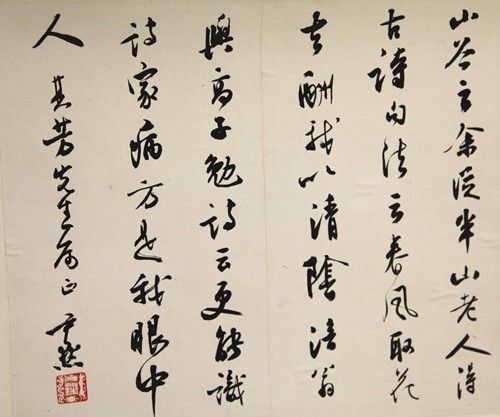 山谷云余從半山老人得
古詩句法云春風取花
去酬我以清陰涪翁
與高子勉詩云更能識
詩家病方是我眼中
人 其芳先生属正 尹默